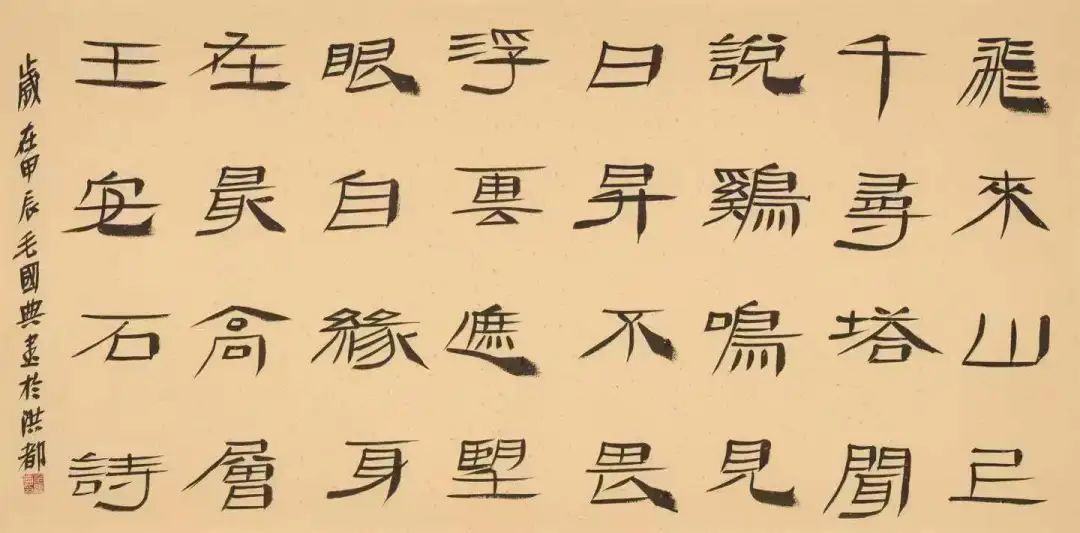 飛來山上
千尋塔聞
說鷄鳴見
日昇不畏
浮雲遮望
眼自緣身
在最高層
王安石詩
歲在甲辰毛國典書於洪都